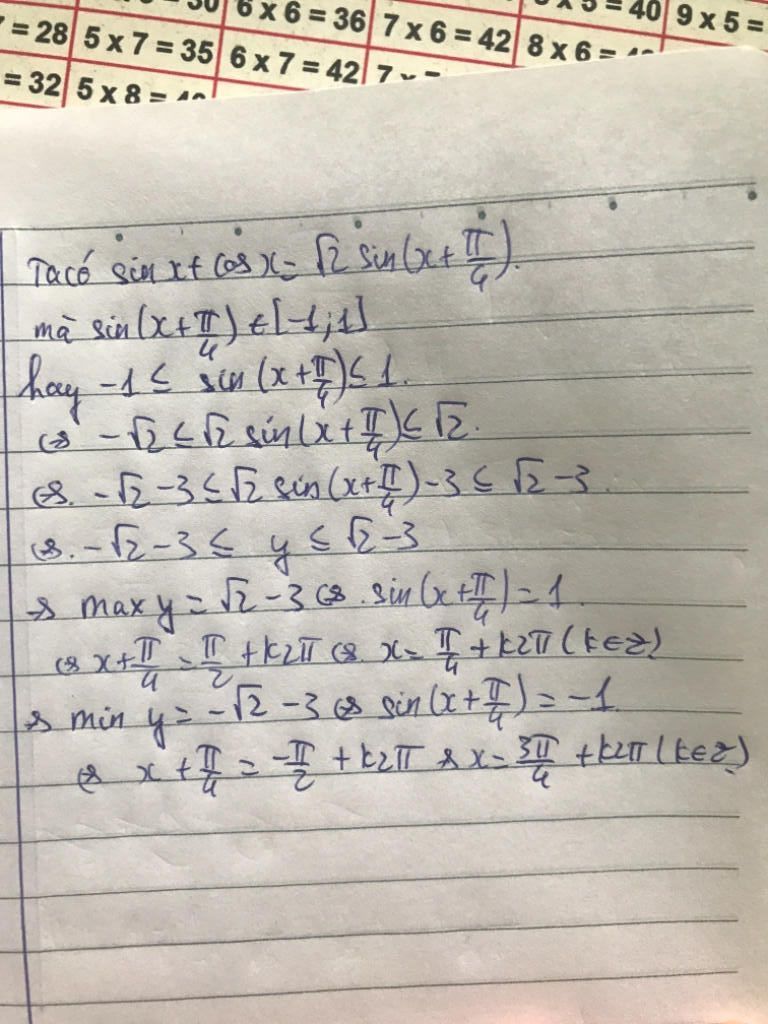 = 30 6 x 6 = 36 7 x 6 = 42 x 5 = 40 9 x 5 =
= 28 5 x 7 = 35 6 x 7 = 42 7 x 8 x 6 =
= 32 5 x 8 =
Ta có sin x + cos x = √2 sin(x + π/4).
mà sin(x + π/4) ∈ [-1; 1]
hay -1 ≤ sin(x + π/4) ≤ 1.
⇔ -√2 ≤ √2 sin(x + π/4) ≤ √2.
⇔. -√2 - 3 ≤ √2 sin(x + π/4) - 3 ≤ √2 - 3.
⇔. -√2 - 3 ≤ y ≤ √2 - 3
⇒ max y = √2 - 3 ⇔. sin(x + π/4) = 1.
⇔ x + π/4 = π/2 + k2π ⇔. x = π/4 + k2π (k ∈ Z)
⇒ min y = -√2 - 3 ⇔ sin(x + π/4) = -1.
⇔ x + π/4 = -π/2 + k2π ⇒ x = 3π/4 + k2π (k ∈ Z)